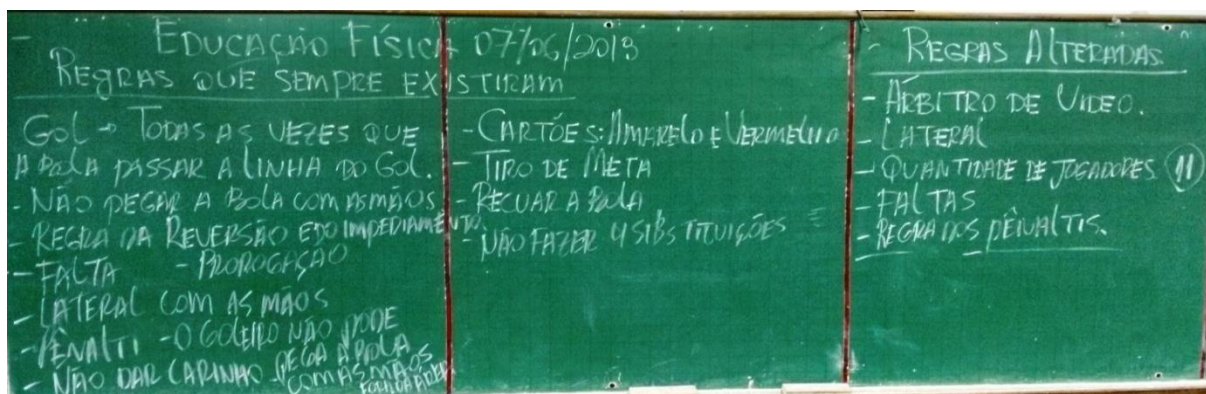 - EDUCAÇÃO FÍSICA 07/06/2013
REGRAS QUE SEMPRE EXISTIRAM
GOL → TODAS AS VEZES QUE
A BOLA PASSAR A LINHA DO GOL.
- NÃO PEGAR A BOLA COM AS MÃOS
- REGRA DA REVERSÃO E DO IMPEDIMENTO
- FALTA - PROROGAÇÃO
- LATERAL COM AS MÃOS
- PÊNALTI - O GOLEIRO NÃO PODE
PEGA A BOLA
- NÃO DAR CARINHO - COM AS MÃOS
FORA DA ÁREA
- CARTÕES: AMARELO E VERMELHO
- TIRO DE META
- RECUAR A BOLA
- NÃO FAZER 4 SIBSTITUIÇÕES
- REGRAS ALTERADAS.
- ÁRBITRO DE VIDEO.
- LATERAL
- QUANTIDADE DE JOGADORES 11
- FALTAS
- REGRA DOS PÊNALTIS.